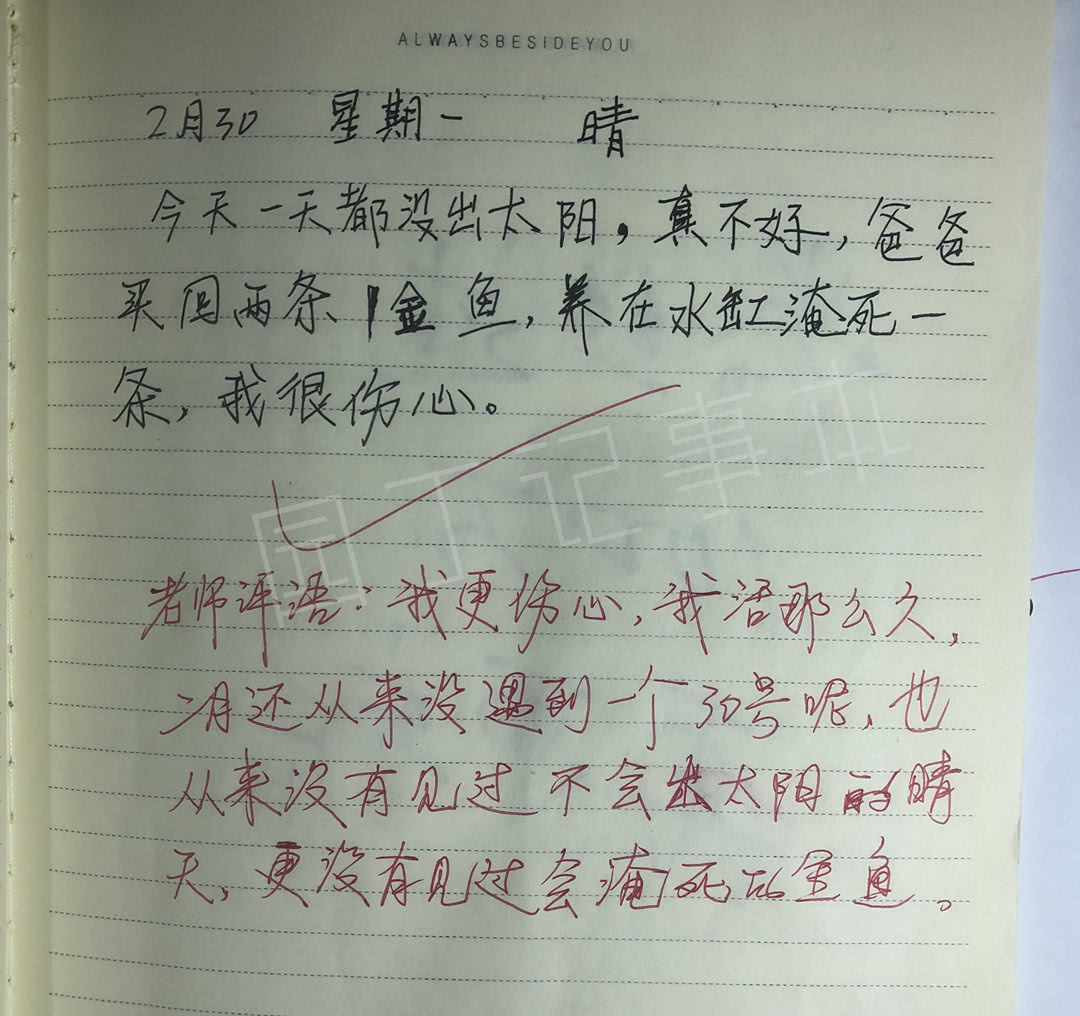 ALWAYSBESIDEYOU
2月30 星期一 晴
今天一天都没出太阳，真不好，爸爸
买回两条金鱼，养在水缸淹死一
条，我很伤心。
园丁记事本
老师评语：我更伤心，我活那么久，
二月还从来没遇到一个30号呢，也
从来没有见过不会出太阳的晴
天，更没有见过会淹死的金鱼。